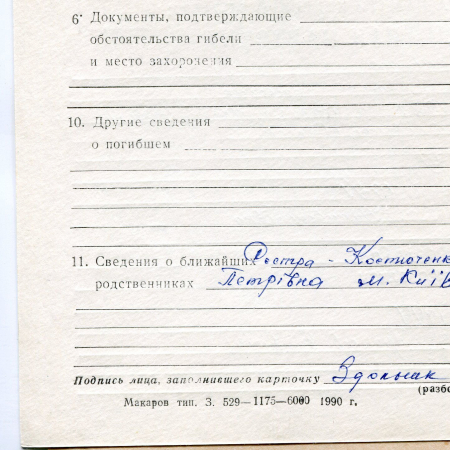 6· Документы, подтверждающие
обстоятельства гибели
и место захоронения
10. Другие сведения
о погибшем
11. Сведения о ближайших Сестра - Костюченк
родственниках Петрівна м. Київ
Подпись лица, заполнившего карточку
(разбо
Макаров тип. З. 529—1175—6000 1990 г.